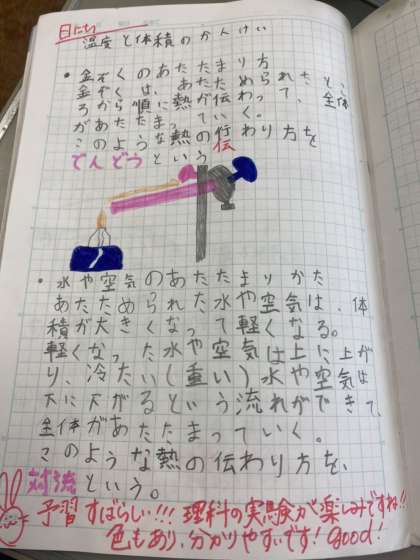 日にち
温度と体積のかんけい
・金ぞくのあたたまり方
金ぞくは、あたためられたとこ
ろから順に熱が伝わって、全体
があたたまっていく。
このような熱の行わり方を
伝
でんどうという
・水や空気のあたたまりかた
あたためられた水や空気は、体
積が大きくなって軽くなる。
軽くなった水や空気は上に上が
り、冷たい(重い)水や空気は
下に下がるという流れができて、
全体があたたまっていく。
このような熱の伝わり方を、
対流という。
予習すばらしい!!! 理科の実験が楽しみですね!!
色もあり、分かりやすいです! good!